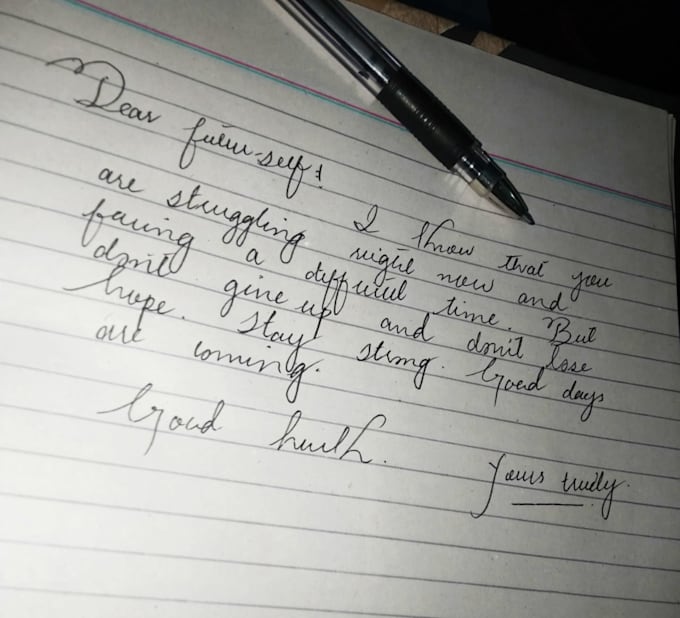 Dear future-self!
I know that you
are struggling right now and
facing a difficult time. But
don't give up and don't lose
hope. Stay strong. Good days
are coming.
Good luck.
Yours truly.